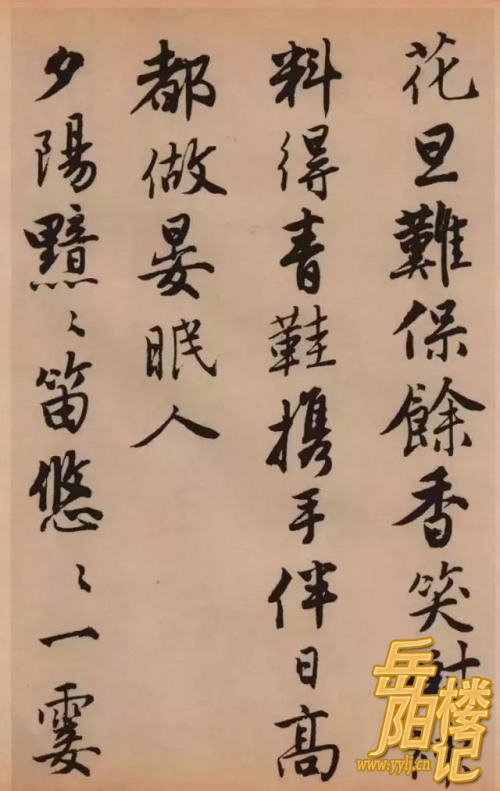 花且難保餘香笑
料得青鞋携手伴日高
都做晏眠人
夕陽黯〻笛悠〻一霎
岳阳楼记
www.yylj.cn